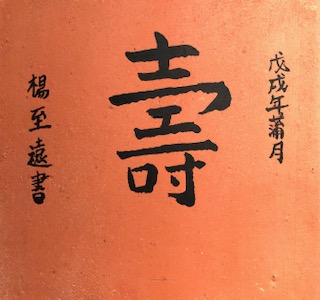 戊戌年蒲月
壽
楊至遠書